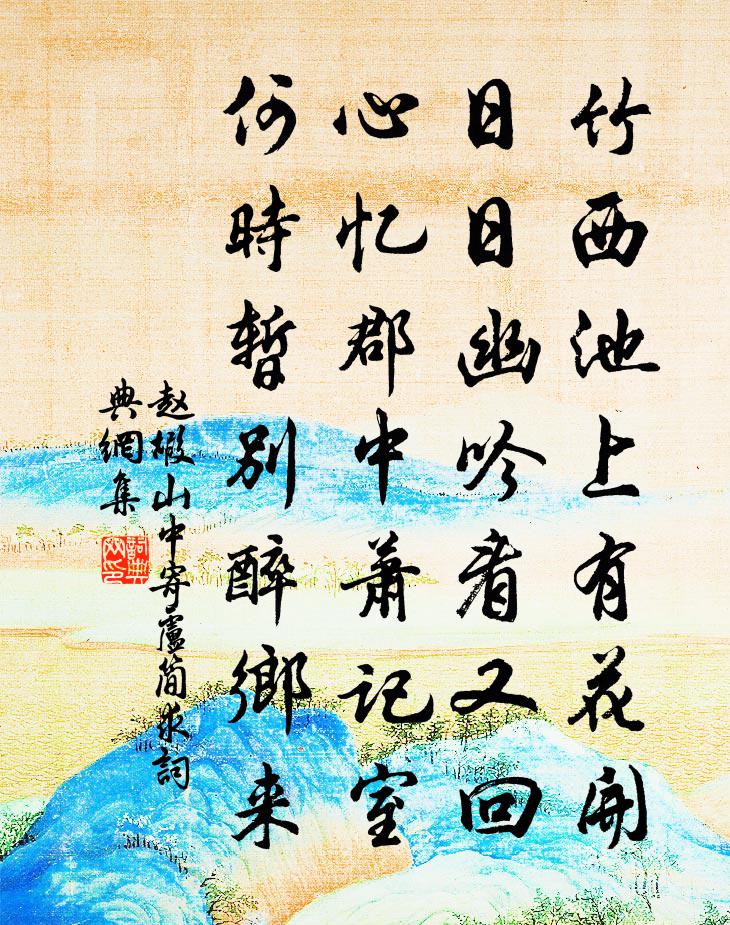 竹西池上有花開
日日幽吟看又回
心忆郡中蕭記室
何時暫別醉鄉来
赵嘏山中寄盧简求詞
典網集
詞典
网印